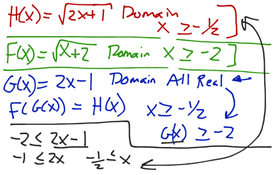 H(x) = √2x+1 Domain x ≥ -1/2
F(x) = √x+2 Domain x ≥ -2
G(x) = 2x-1 Domain All Real
F(G(x)) = H(x) x ≥ -1/2
G(x) ≥ -2
-2 ≤ 2x-1
-1 ≤ 2x -1/2 ≤ x